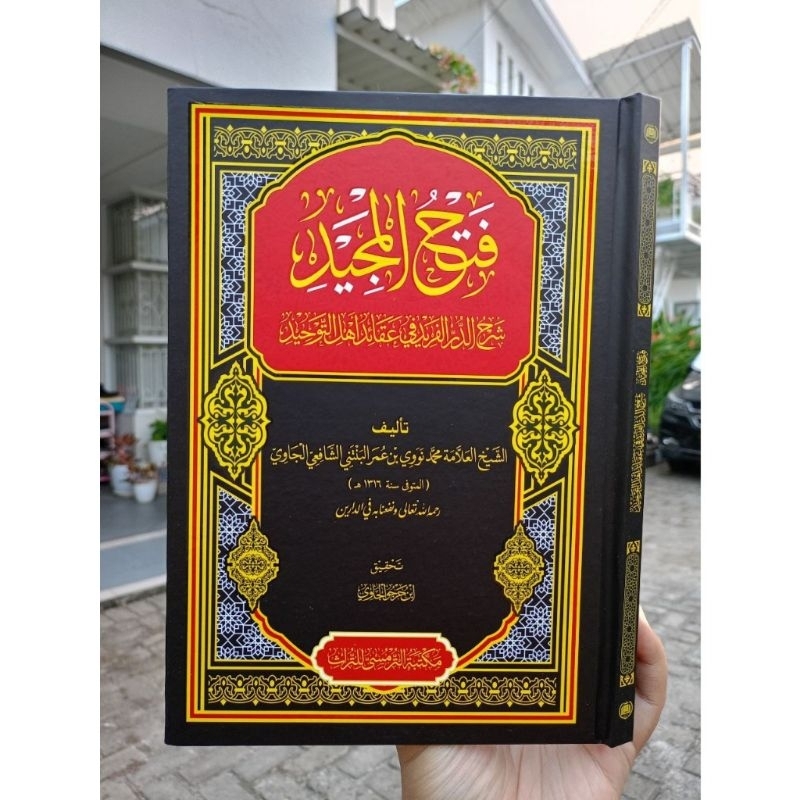 فَتْحُ المَجِيْدِ
شَرْحُ الدُّرِّ الفَرِيْدِ فِي عَقَائِدِ أَهْلِ التَّوْحِيْدِ
تأليف
الشَّيْخِ العَلَّامَة مُحَمَّد نَوَوِي بْن عُمَر البَنْتَنِي الشَّافِعِي الجَاوِي
(المتوفى سنة ١٣١٦ هـ)
رحمه الله تعالى ونفعنا به في الدارين
تَحْقِيْق
ابْن حَرْجُو الجَاوِي
مكتبة الترمسي للتراث